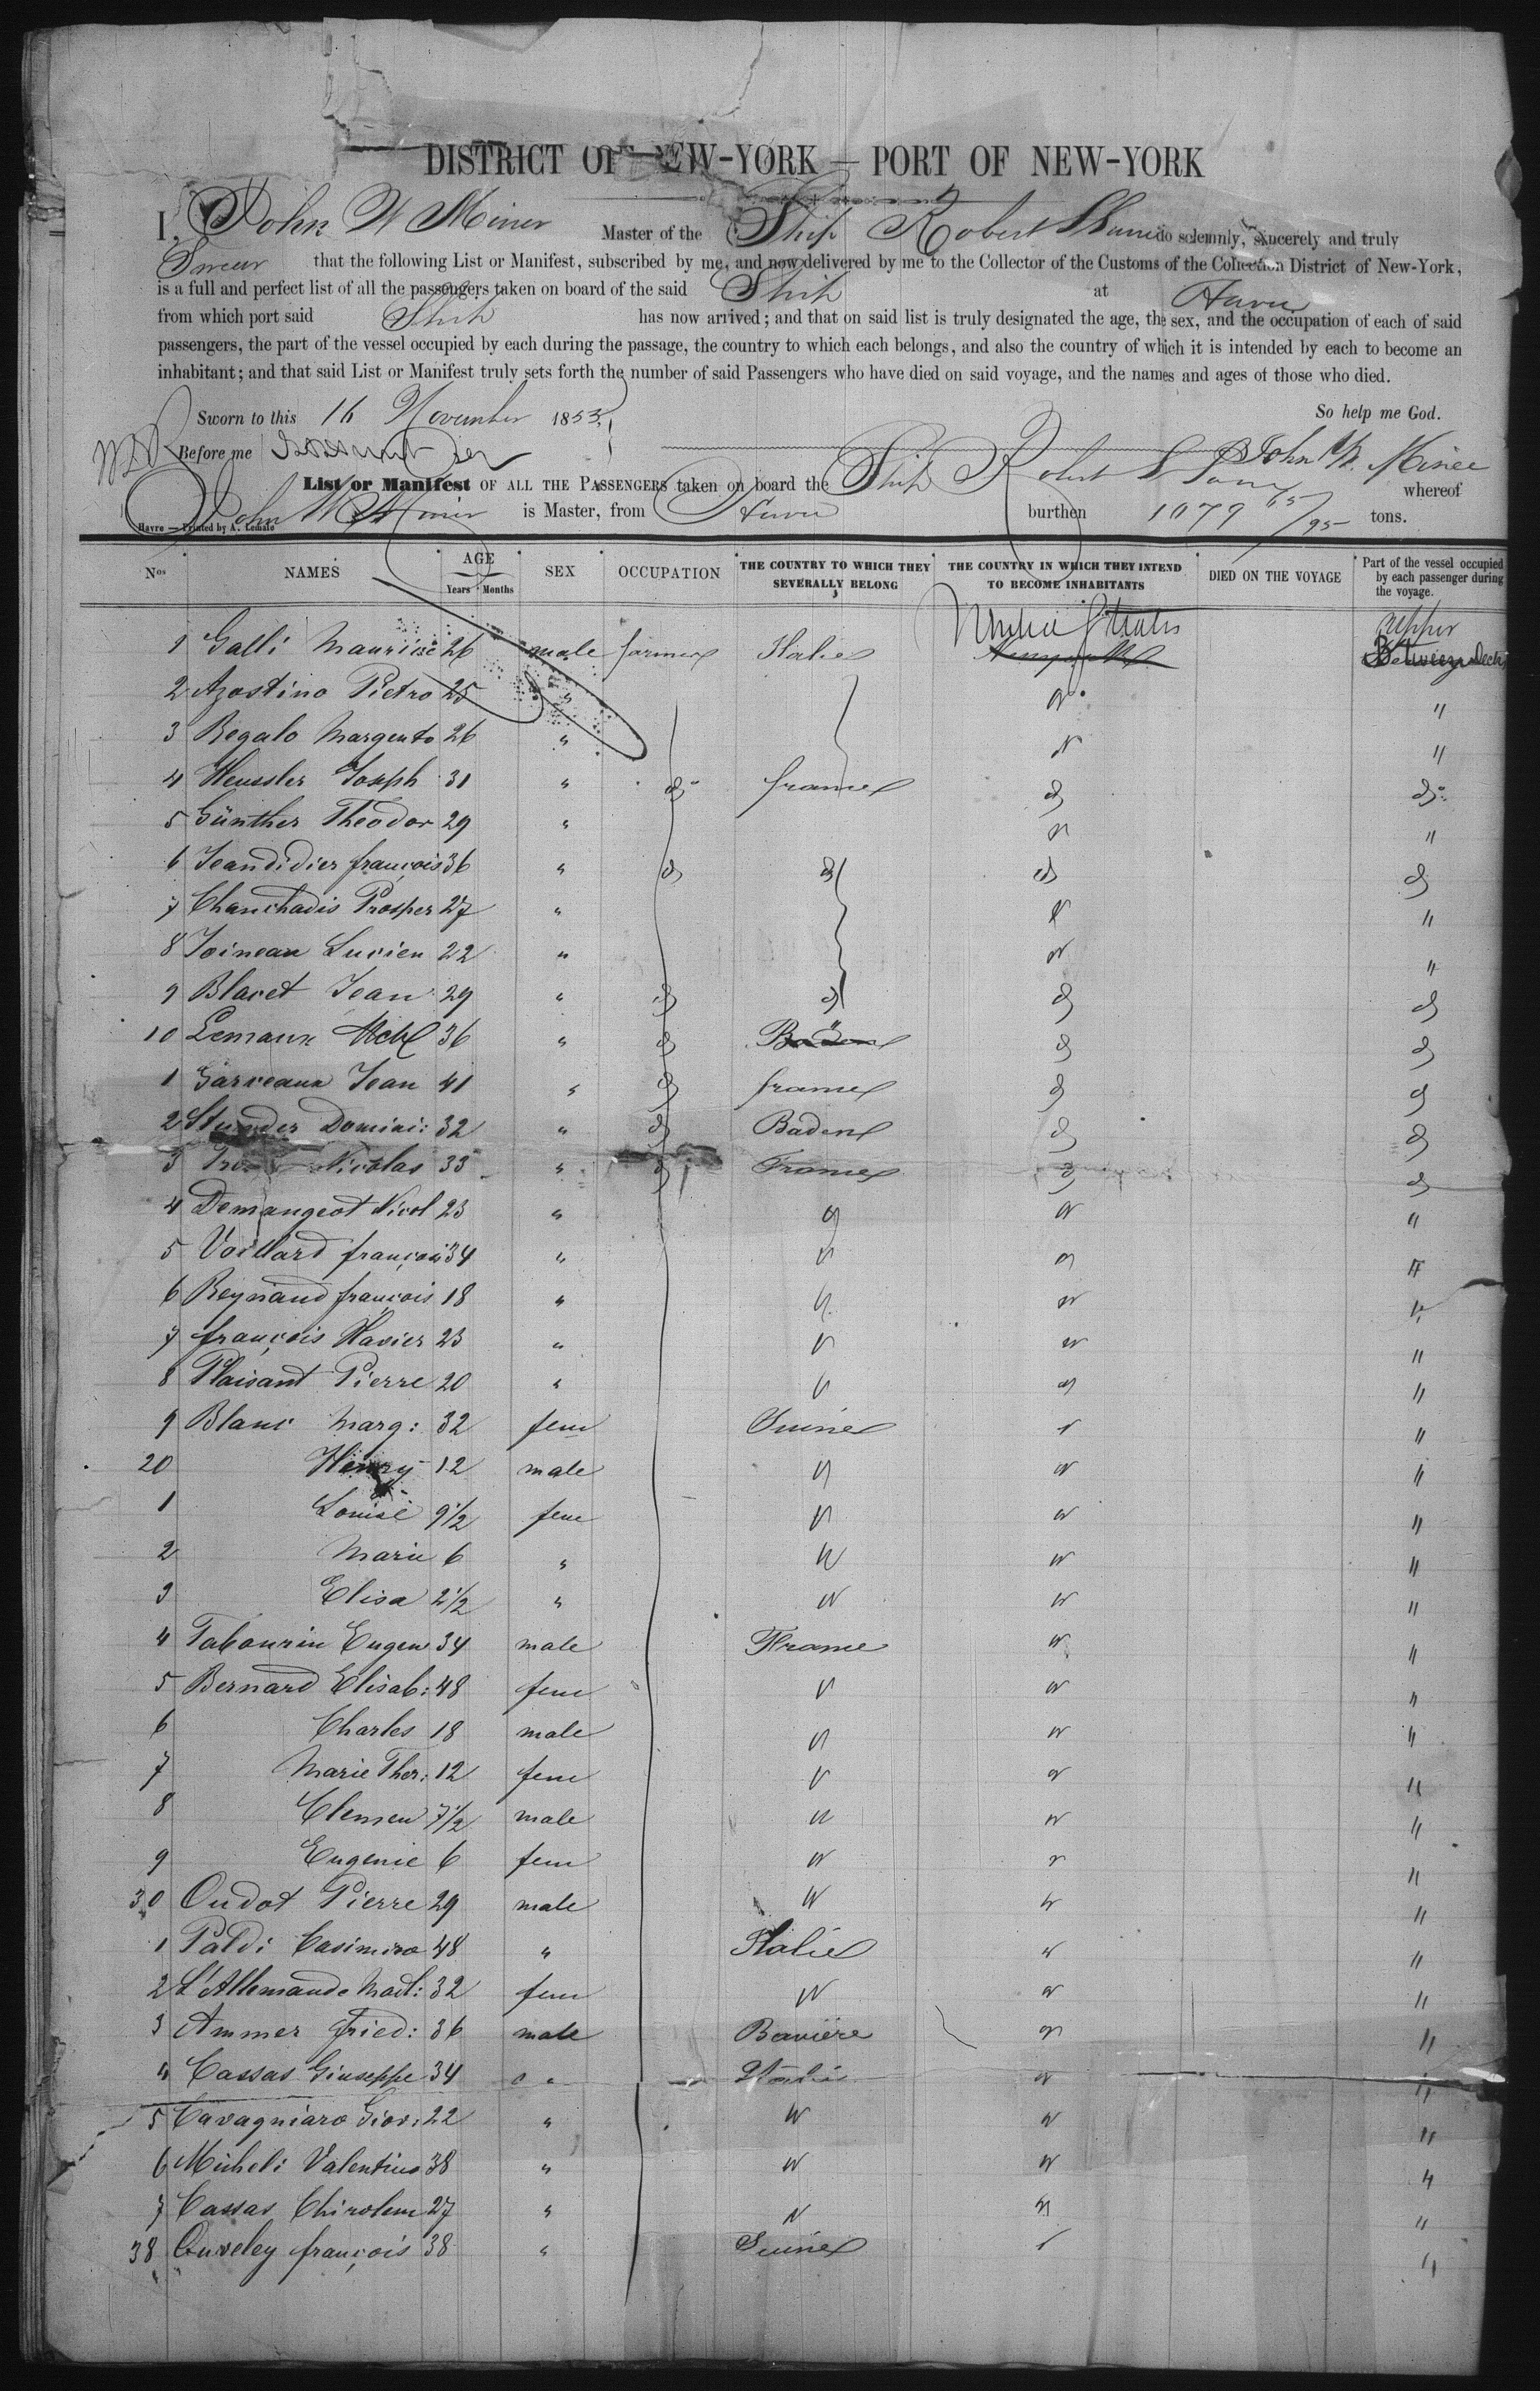 DISTRICT OF NEW-YORK — PORT OF NEW-YORK
I, John W Miner Master of the Ship Robert do solemnly, sincerely and truly
Swear that the following List or Manifest, subscribed by me, and now delivered by me to the Collector of the Customs of the Collection District of New-York,
is a full and perfect list of all the passengers taken on board of the said Ship at Havre
from which port said Ship has now arrived; and that on said list is truly designated the age, the sex, and the occupation of each of said
passengers, the part of the vessel occupied by each during the passage, the country to which each belongs, and also the country of which it is intended by each to become an
inhabitant; and that said List or Manifest truly sets forth the number of said Passengers who have died on said voyage, and the names and ages of those who died.
Sworn to this 16 November 1853 So help me God.
Before me John W. Miner
List or Manifest OF ALL THE PASSENGERS taken on board the Ship Robert whereof
John W Miner is Master, from Havre burthen 1079 65/95 tons.
Havre — Printed by A. Lemale
Nos NAMES AGE Years Months SEX OCCUPATION THE COUNTRY TO WHICH THEY SEVERALLY BELONG THE COUNTRY IN WHICH THEY INTEND TO BECOME INHABITANTS DIED ON THE VOYAGE Part of the vessel occupied by each passenger during the voyage.
United States upper
1 Galli Maurise 26 male farmer Italie Between Deck
2 Agostino Pietro 25 " "
3 Regalo Margento 26 " "
4 Heussler Joseph 31 " do france do do
5 Günther Theodor 29 " "
6 Jeandidier françois 36 " do do do do
7 Chanchadis Prosper 27 " "
8 Joineau Lucien 22 " "
9 Blaret Jean 29 " do do do do
10 Lemaux 36 " do Baden do do
1 Garreaux Jean 41 " do france do do
2 Stunder Domini: 32 " do Baden do do
3 Nicolas 33 " do France do do
4 Demangeot Nicol 23 " " " "
5 Voillard françois 34 " " " "
6 Reynaud françois 18 " " " "
7 françois Xavier 23 " " " "
8 Plaisant Pierre 20 " " " "
9 Blanc Marg: 32 fem Suisse " "
20 Henry 12 male " " "
1 Louise 9 1/2 fem " " "
2 Marie 6 " " " "
3 Elisa 2 1/2 " " " "
4 Tabourin Eugen 34 male France " "
5 Bernard Elisab: 48 fem " " "
6 Charles 18 male " " "
7 Marie Ther: 12 fem " " "
8 Clemen 7 1/2 male " " "
9 Eugenie 6 fem " " "
30 Oudot Pierre 29 male " " "
1 Paldi Casimiro 48 " Italie " "
2 L'Allemande Mad: 32 fem " " "
3 Ammer Fried: 36 male Bavière " "
4 Cassas Giuseppe 34 " Italie " "
5 Cavagniaro Giov: 22 " " " "
6 Micheli Valentino 38 " " " "
7 Cassas Chirolem 27 " " " "
38 Cuveley françois 38 " Suisse " "